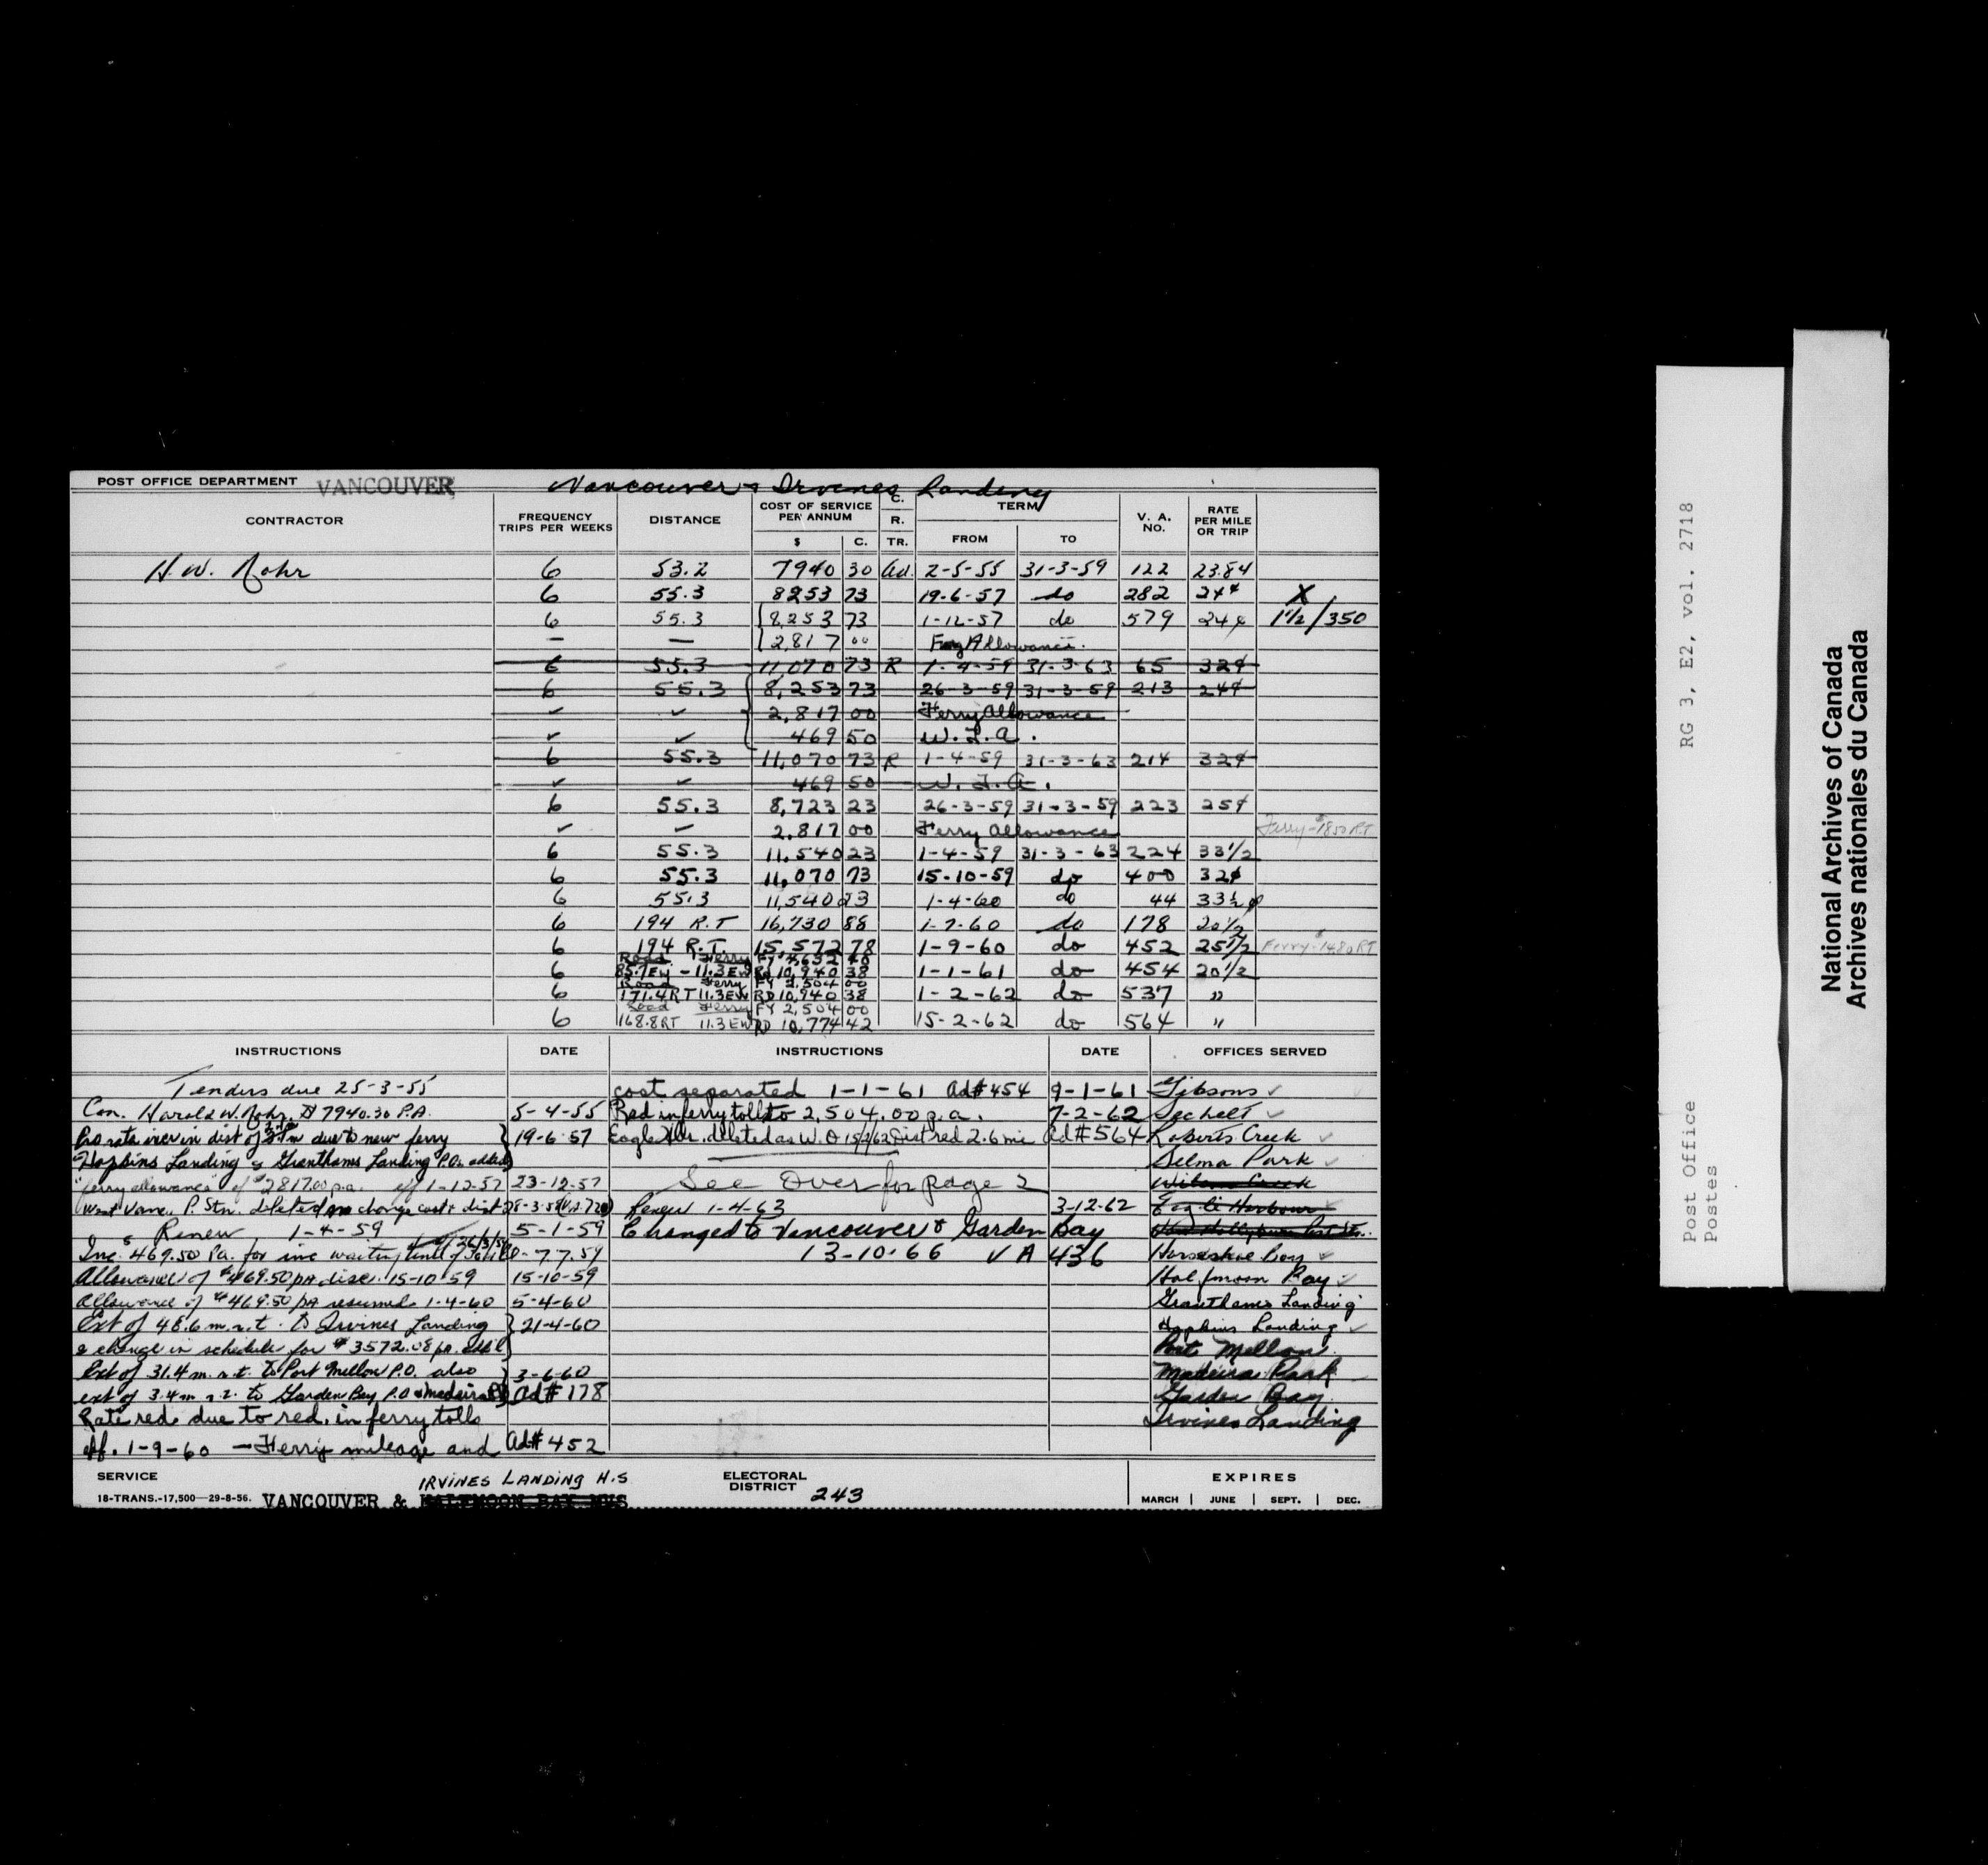 POST OFFICE DEPARTMENT VANCOUVER Vancouver & Irvines Landing
CONTRACTOR FREQUENCY TRIPS PER WEEKS DISTANCE COST OF SERVICE PER ANNUM $ C. C. R. TR. TERM FROM TO V. A. NO. RATE PER MILE OR TRIP
H. W. Rohr 6 53.2 7940 30 Ad. 2-5-55 31-3-59 122 23.84
6 55.3 8253 73 19-6-57 do 282 24¢ X
6 55.3 8,253 73 1-12-57 do 579 24¢ 1 1/2 / 350
— — 2,817 00 Allowance.
6 55.3 11,070 73 R 1-4-59 31-3-63 65 32¢
6 55.3 8,253 73 26-3-59 31-3-59 213 24¢
✓ ✓ 2,817 00 Ferry Allowance
✓ ✓ 469 50 W. T. A.
6 55.3 11,070 73 R 1-4-59 31-3-63 214 32¢
✓ ✓ 469 50 W. T. A.
6 55.3 8,723 23 26-3-59 31-3-59 223 25¢
✓ ✓ 2,817 00 Ferry Allowance Ferry-$1850 R.T.
6 55.3 11,540 23 1-4-59 31-3-63 224 33 1/2
6 55.3 11,070 73 15-10-59 do 400 32¢
6 55.3 11,540 23 1-4-60 do 44 33 1/2 ¢
6 194 R.T 16,730 88 1-7-60 do 178 20 1/2
6 194 R.T. 15,572 78 1-9-60 do 452 25 1/2 Ferry-$1480 RT
Road Ferry FY 4,632 40
6 85.7 EW - 11.3 EW Rd 10,940 38 1-1-61 do 454 20 1/2
Road Ferry FY 2,504 00
6 171.4 RT 11.3 EW RD 10,940 38 1-2-62 do 537 "
Road Ferry FY 2,504 00
6 168.8 RT 11.3 EW RD 10,774 42 15-2-62 do 564 "
INSTRUCTIONS DATE INSTRUCTIONS DATE OFFICES SERVED
Tenders due 25-3-55
Con. Harold W. Rohr, @ 7940.30 P.A. 5-4-55
Pro rata incr in dist of m due to new ferry 19-6-57
Hopkins Landing & Granthams Landing P.O. added
"ferry allowance" of $2817.00 p.a. eff 1-12-57 23-12-57
West Vanc. P. Stn. deleted no change cost & dist
Renew 1-4-59 5-1-59
Inc. $469.50 P.A. for inc waiting time
Allowance of $469.50 pa disc. 15-10-59 15-10-59
Allowance of $469.50 pa resumed 1-4-60 5-4-60
Ext of 48.6 m.r.t. to Irvines Landing 21-4-60
& change in schedule for $3572.08 pa.
Ext of 31.4 m.r.t. to Port Mellon P.O. also 3-6-60
ext of 3.4 m r.t. to Garden Bay P.O & Madeira Pk Ad# 178
Rate red. due to red. in ferry tolls
eff. 1-9-60 — Ferry mileage and Ad# 452
cost separated 1-1-61 Ad# 454 9-1-61
Red in ferry tolls to 2,504.00 p.a. 7-2-62
Eagle Hbr. deleted as W.O 15/2/62 Dist red 2.6 mi Ad# 564
See Over for page 2
Renew 1-4-63 3-12-62
Changed to Vancouver & Garden Bay
13-10-66 VA 436
Gibsons ✓
Sechelt ✓
Roberts Creek ✓
Selma Park ✓
Wilson Creek
Eagle Harbour
Horseshoe Bay ✓
Halfmoon Bay ✓
Granthams Landing
Hopkins Landing ✓
Port Mellon
Madeira Park
Garden Bay
Irvines Landing
SERVICE IRVINES LANDING H.S ELECTORAL DISTRICT 243 EXPIRES
18-TRANS.-17,500—29-8-56. VANCOUVER & HALFMOON BAY MVS MARCH JUNE SEPT. DEC.
RG 3, E2, vol. 2718
Post Office
Postes
National Archives of Canada
Archives nationales du Canada